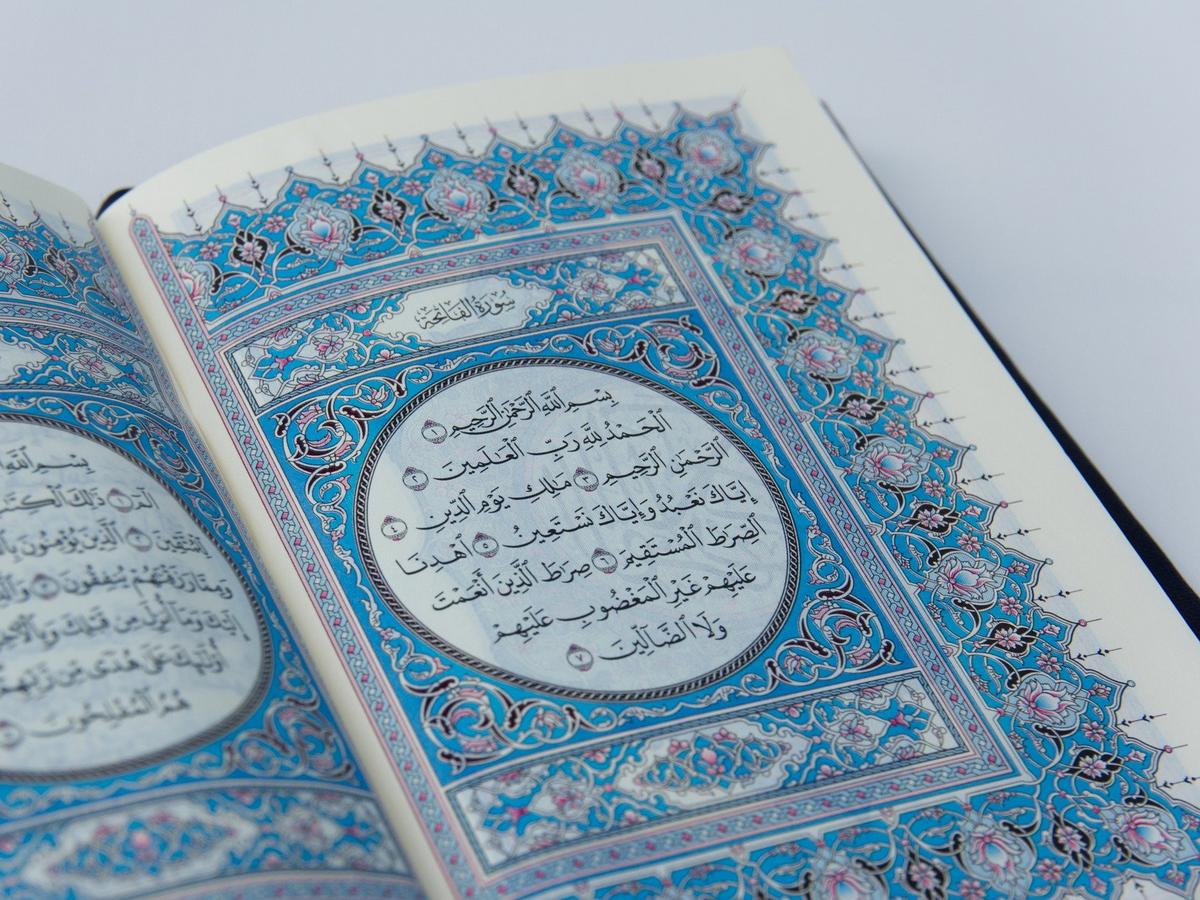 سُورَةُ الفَاتِحَةِ
بِسْمِ ٱللَّهِ ٱلرَّحْمَٰنِ ٱلرَّحِيمِ ١
ٱلْحَمْدُ لِلَّهِ رَبِّ ٱلْعَٰلَمِينَ ٢
ٱلرَّحْمَٰنِ ٱلرَّحِيمِ ٣ مَٰلِكِ يَوْمِ ٱلدِّينِ ٤
إِيَّاكَ نَعْبُدُ وَإِيَّاكَ نَسْتَعِينُ ٥ ٱهْدِنَا
ٱلصِّرَٰطَ ٱلْمُسْتَقِيمَ ٦ صِرَٰطَ ٱلَّذِينَ أَنْعَمْتَ
عَلَيْهِمْ غَيْرِ ٱلْمَغْضُوبِ عَلَيْهِمْ
وَلَا ٱلضَّآلِّينَ ٧
بِسْمِ ٱللَّهِ
الٓمٓ ١ ذَٰلِكَ ٱلْكِتَٰبُ
لِّلْمُتَّقِينَ ٢ ٱلَّذِينَ يُؤْمِنُونَ
وَمِمَّا رَزَقْنَٰهُمْ يُنفِقُونَ ٣
إِلَيْكَ وَمَآ أُنزِلَ مِن قَبْلِكَ
أُو۟لَٰٓئِكَ عَلَىٰ هُدًى مِّن رَّبِّهِمْ
هُمُ ٱلْمُفْلِحُونَ